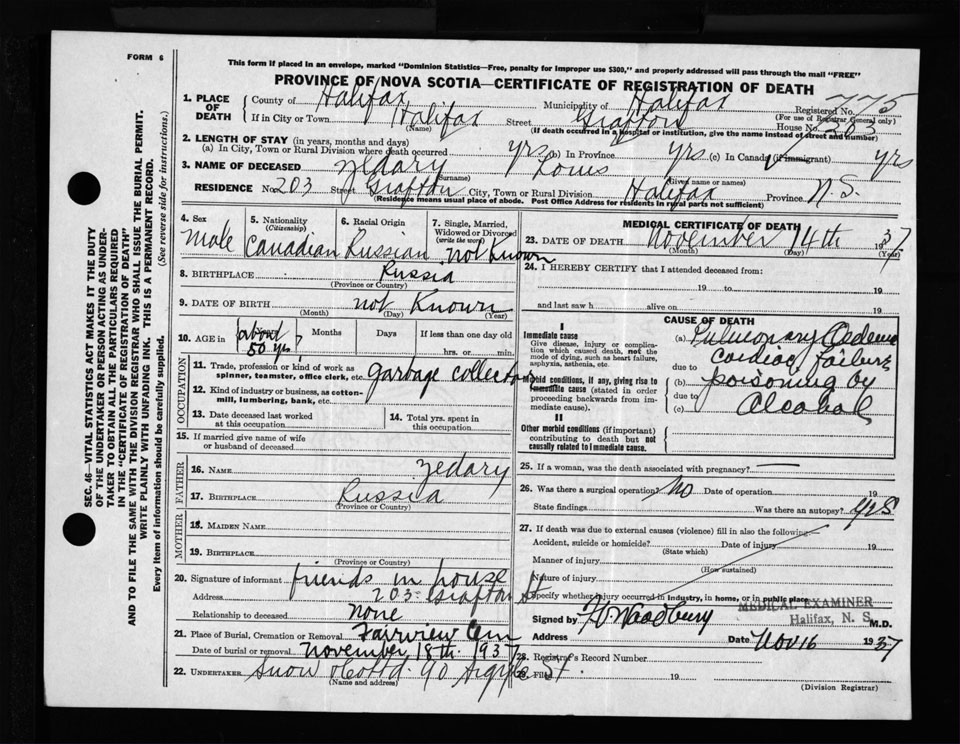 FORM 6
This form if placed in an envelope, marked "Dominion Statistics—Free, penalty for improper use $300," and properly addressed will pass through the mail "FREE"
PROVINCE OF NOVA SCOTIA—CERTIFICATE OF REGISTRATION OF DEATH
1. PLACE OF DEATH County of Halifax Municipality of Halifax Registered No. 775
(For use of Registrar General only)
If in City or Town Halifax Street Grafton House No. 203
(Name) (If death occurred in a hospital or institution, give the name instead of street and number)
2. LENGTH OF STAY (in years, months and days)
(a) In City, Town or Rural Division where death occurred yrs (b) In Province yrs (c) In Canada (if immigrant) yrs
3. NAME OF DECEASED Zedary Louis
(Surname) (Given name or names)
RESIDENCE No. 203 Street Grafton City, Town or Rural Division Halifax Province N.S.
(Residence means usual place of abode. Post Office Address for residents in rural parts not sufficient)
SEC. 46—VITAL STATISTICS ACT MAKES IT THE DUTY
OF THE UNDERTAKER OR PERSON ACTING AS UNDER-
TAKER TO OBTAIN ALL THE PARTICULARS REQUIRED
IN THE "CERTIFICATE OF REGISTRATION OF DEATH"
AND TO FILE THE SAME WITH THE DIVISION REGISTRAR WHO SHALL ISSUE THE BURIAL PERMIT.
WRITE PLAINLY WITH UNFADING INK. THIS IS A PERMANENT RECORD.
Every item of information should be carefully supplied. (See reverse side for instructions.)
4. Sex 5. Nationality 6. Racial Origin 7. Single, Married,
(Citizenship) Widowed or Divorced
(write the word)
Male Canadian Russian not Known
8. BIRTHPLACE Russia
(Province or Country)
9. DATE OF BIRTH not Known
(Month) (Day) (Year)
10. AGE in Years Months Days If less than one day old
about 50 yrs hrs. or min.
OCCUPATION
11. Trade, profession or kind of work as
spinner, teamster, office clerk, etc. garbage collector
12. Kind of industry or business, as cotton-
mill, lumbering, bank, etc.
13. Date deceased last worked
at this occupation
14. Total yrs. spent in
this occupation
15. If married give name of wife
or husband of deceased
FATHER
16. NAME Zedary
17. BIRTHPLACE Russia
(Province or Country)
MOTHER
18. MAIDEN NAME
19. BIRTHPLACE
(Province or Country)
20. Signature of informant friends in house
Address 203 Grafton St
Relationship to deceased none
21. Place of Burial, Cremation or Removal Fairview Cem
Date of burial or removal November 18th 1937
22. UNDERTAKER Snow & Co Ltd. 90 Argyle St.
(Name and address)
MEDICAL CERTIFICATE OF DEATH
23. DATE OF DEATH November 14th 1937
(Month) (Day)
24. I HEREBY CERTIFY that I attended deceased from:
19 to 19
and last saw h alive on 19
CAUSE OF DEATH
I
Immediate cause
Give disease, injury or complica-
tion which caused death, not the
mode of dying, such as heart failure,
asphyxia, asthenia, etc.
(a) Pulmonary Oedema
cardiac failure
due to
Morbid conditions, if any, giving rise to
immediate cause (stated in order
proceeding backwards from im-
mediate cause).
(b) poisoning by
due to
(c) Alcohol
II
Other morbid conditions (if important)
contributing to death but not
causally related to immediate cause.
25. If a woman, was the death associated with pregnancy?
26. Was there a surgical operation? No Date of operation 19
State findings Was there an autopsy? yes
27. If death was due to external causes (violence) fill in also the following:—
Accident, suicide or homicide? Date of injury 19
(State which)
Manner of injury
(How sustained)
Nature of injury
Specify whether injury occurred in industry, in home, or in public place
MEDICAL EXAMINER
Halifax, N. S.
Signed by Woodbury M.D.
Address Date Nov 16 1937
28. Registrar's Record Number
29. Filed 19
(Division Registrar)